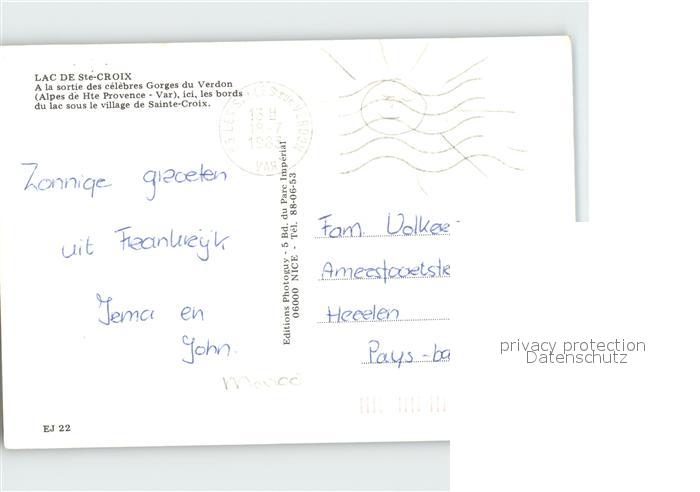 LAC DE Ste-CROIX
A la sortie des célèbres Gorges du Verdon
(Alpes de Hte Provence - Var), ici, les bords
du lac sous le village de Sainte-Croix.
VERDON
VAR
Zonnige groeten
uit Frankrijk
Jema en
John.
Editions Photoguy - 5 Bd. du Parc Impérial
06000 NICE - Tél. 88-06-53
Fam. Volker
Amersfoortstr
Heerlen
Pays-ba
EJ 22
privacy protection
Datenschutz